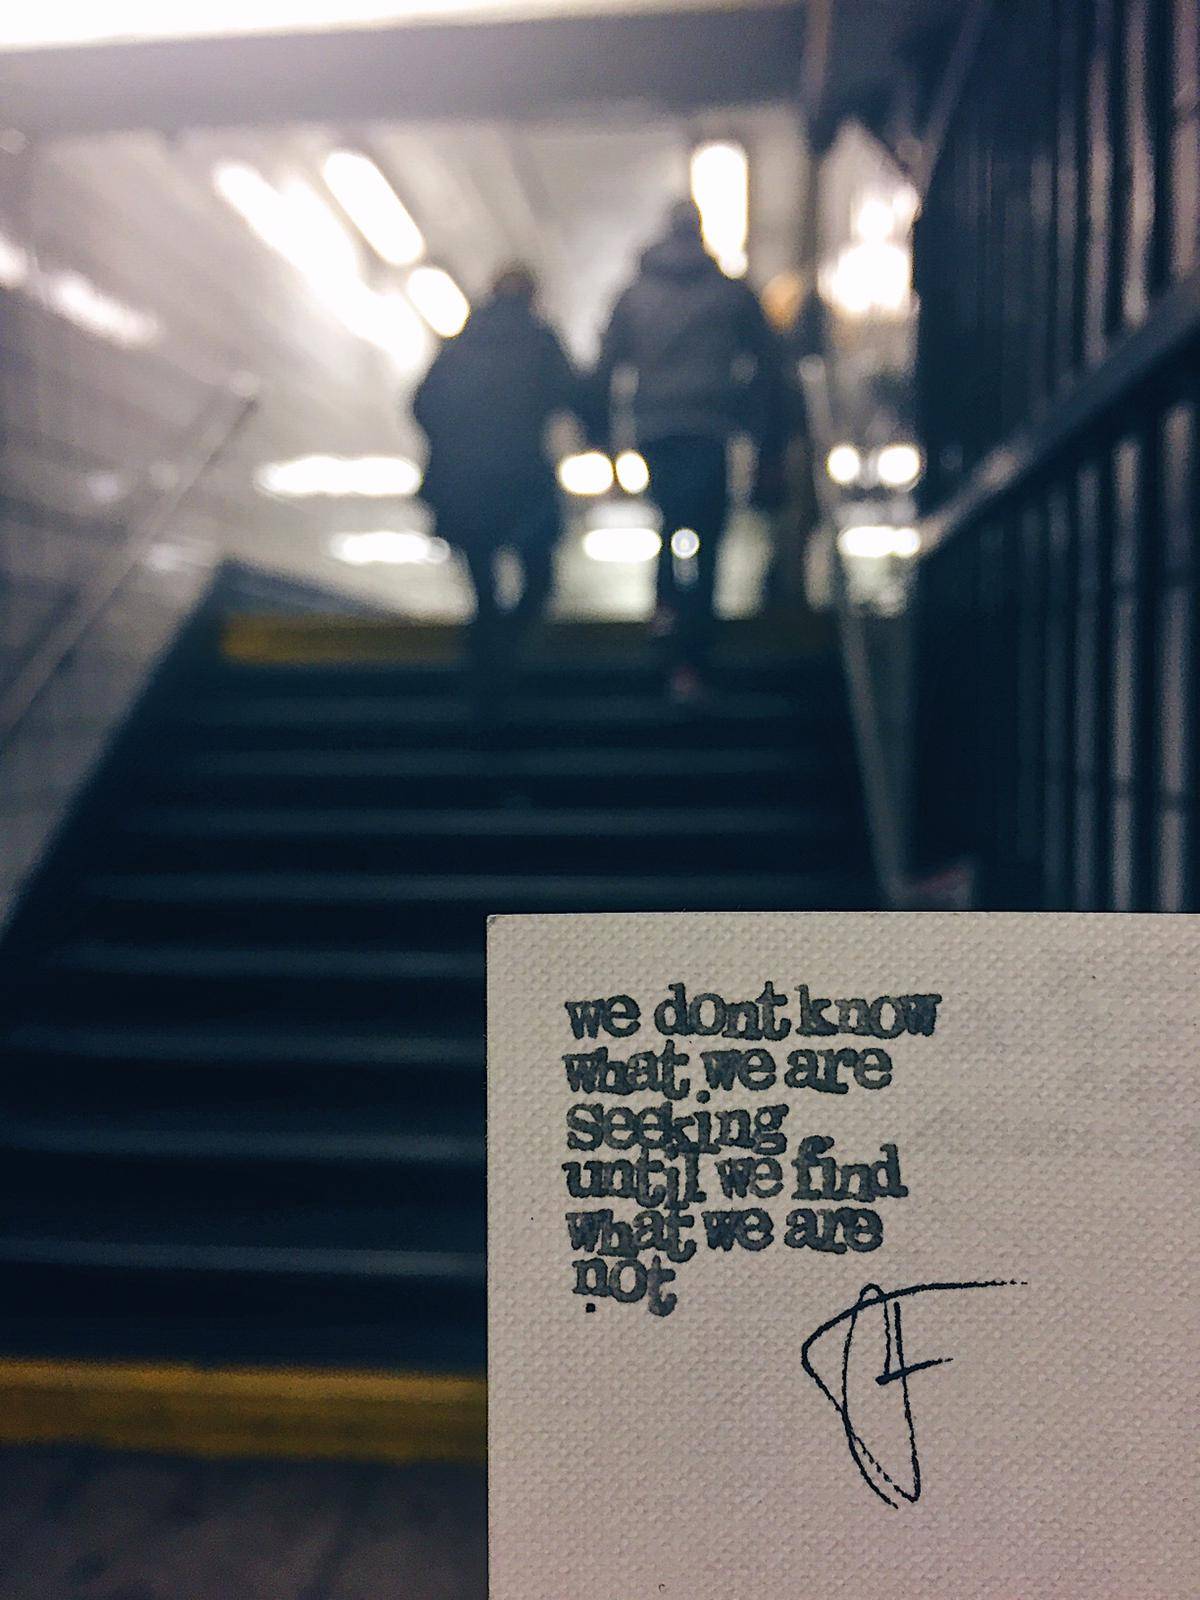 we dont know
what we are
seeking
until we find
what we are
not
.